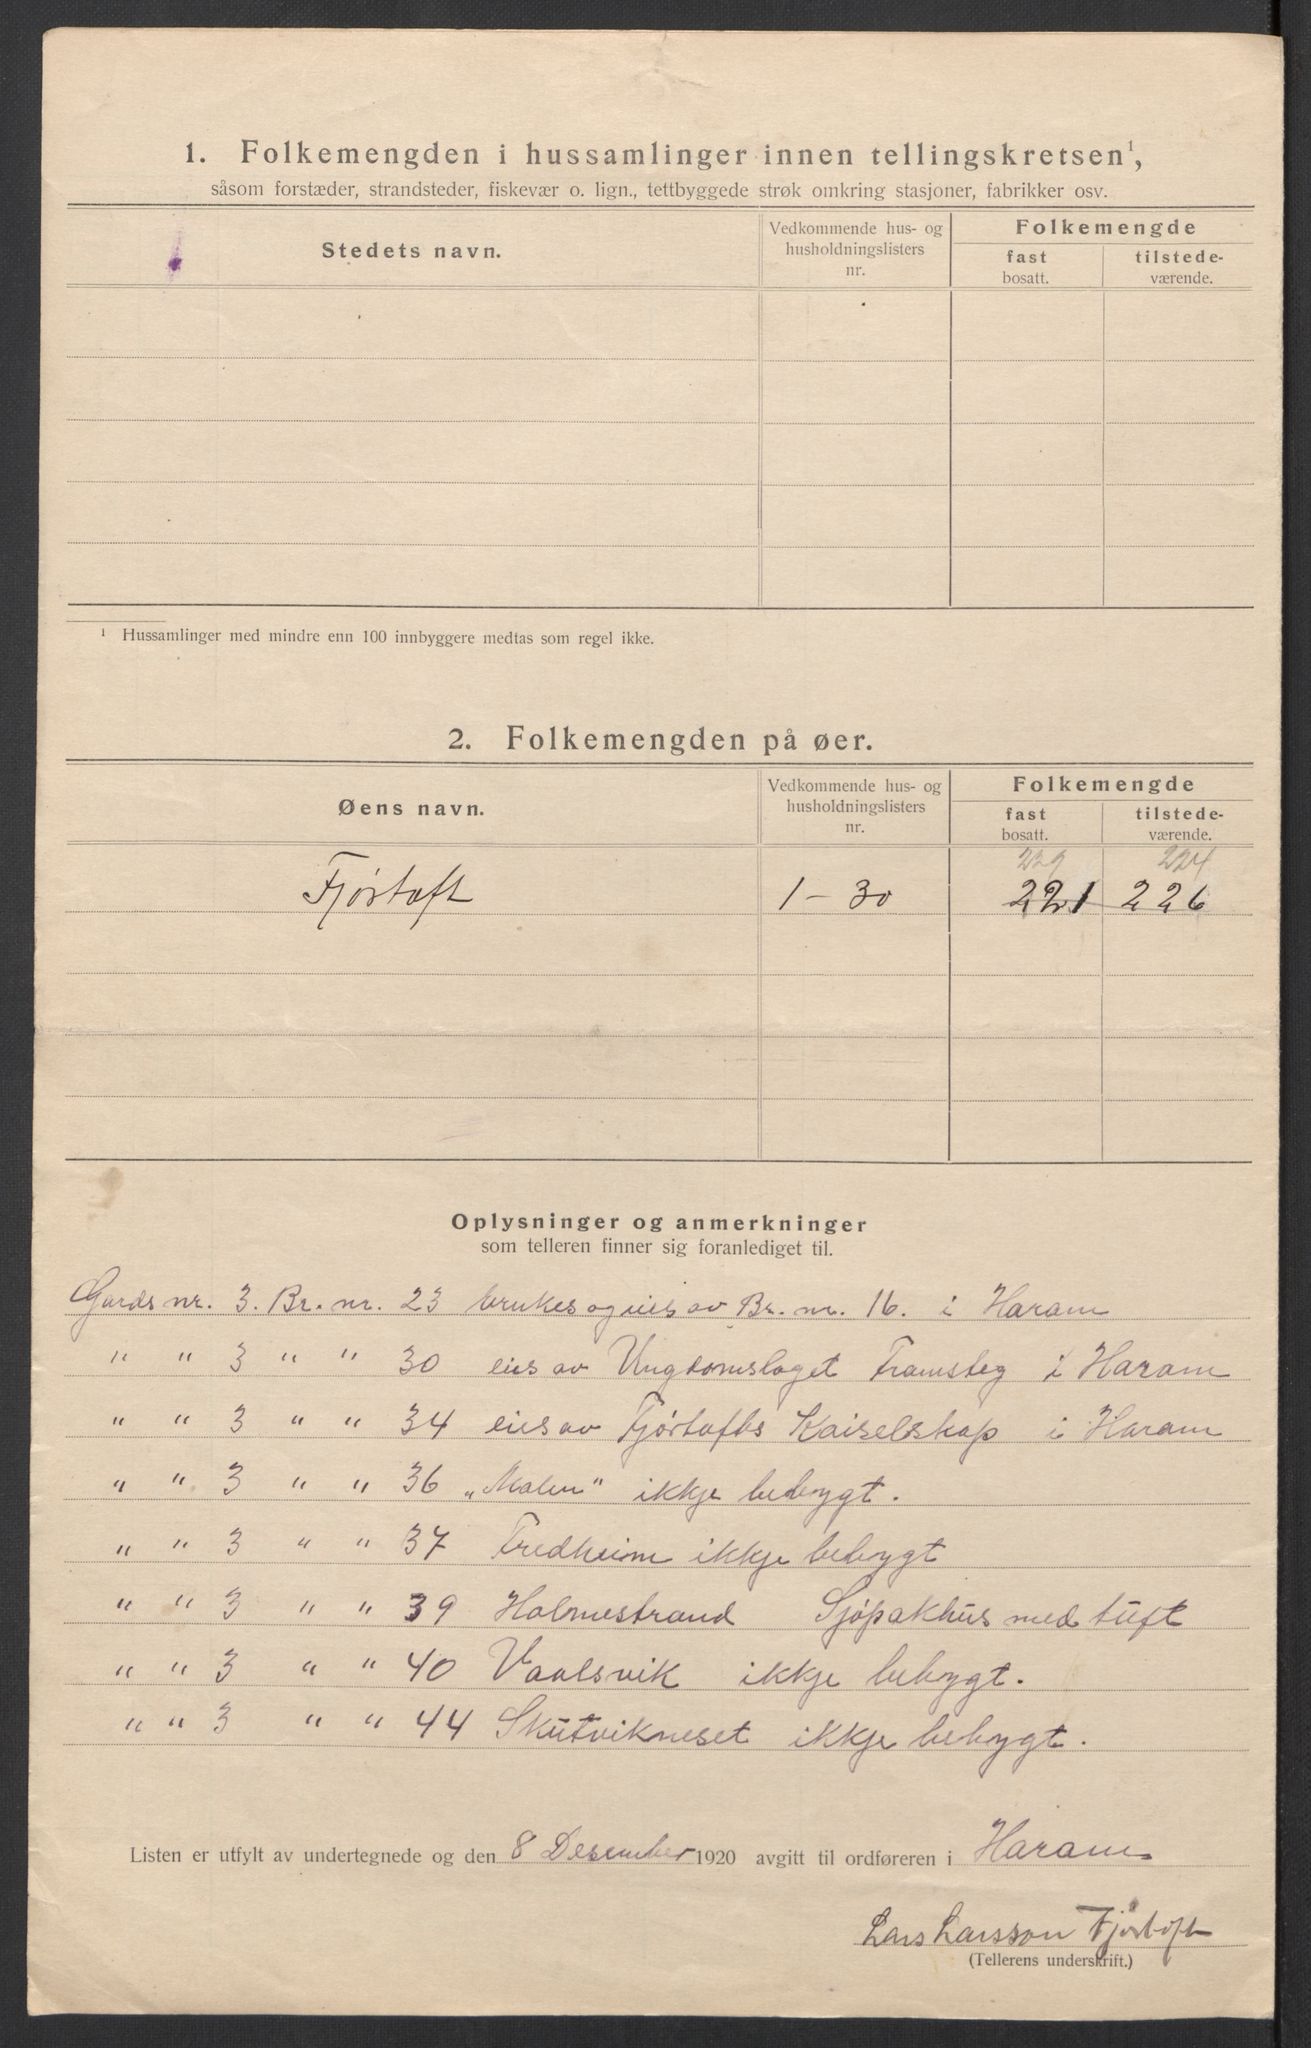 1. Folkemengden i hussamlinger innen tellingskretsen¹,
såsom forstæder, strandsteder, fiskevær o. lign., tettbyggede strøk omkring stasjoner, fabrikker osv.
Stedets navn.
Vedkommende hus- og husholdningslisters nr.
Folkemengde
fast bosatt.
tilstede- værende.
¹ Hussamlinger med mindre enn 100 innbyggere medtas som regel ikke.
2. Folkemengden på øer.
Øens navn.
Vedkommende hus- og husholdningslisters nr.
Folkemengde
fast bosatt.
tilstede- værende.
229 224
Fjørtoft 1 – 30 221 226
Oplysninger og anmerkninger
som telleren finner sig foranlediget til.
Gards nr. 3. Br. nr. 23 brukes og eies av Br. nr. 16. i Haram
" " 3 " " 30 eies av Ungdomslaget Framsteg i Haram
" " 3 " " 34 eies av Fjørtofts Kaiselskap i Haram
" " 3 " " 36 „Malen" ikkje bebygt.
" " 3 " " 37 Fredheim ikkje bebygt
" " 3 " " 39 Holmestrand Sjøpakhus med tuft
" " 3 " " 40 Vaalsvik ikkje bebygt.
" " 3 " " 44 Skutvikneset ikkje bebygt.
Listen er utfylt av undertegnede og den 8 Desember 1920 avgitt til ordføreren i Haram
Lars Larsson Fjørtoft
(Tellerens underskrift.)